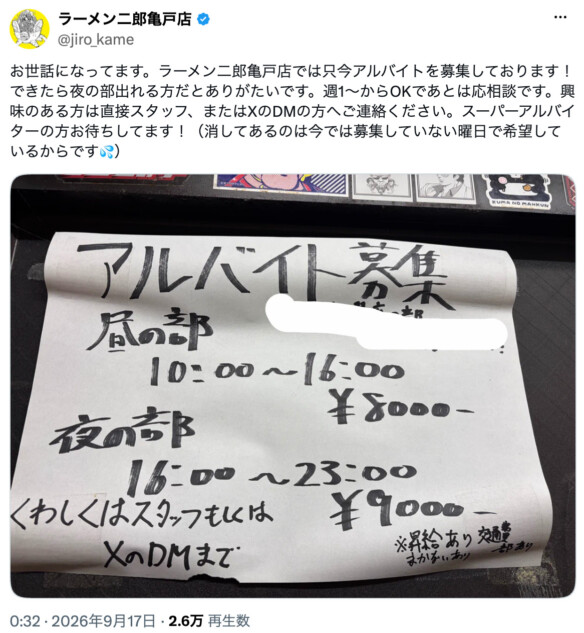 ラーメン二郎亀戸店
@jiro_kame
お世話になってます。ラーメン二郎亀戸店では只今アルバイトを募集しております！
できたら夜の部出れる方だとありがたいです。週1〜からOKであとは応相談です。興
味のある方は直接スタッフ、またはXのDMの方へご連絡ください。スーパーアルバイ
ターの方お待ちしてます！（消してあるのは今では募集していない曜日で希望して
いるからです💦）
KUMA NO MANKUN
アルバイト募集
昼の部
10:00〜16:00
¥8000-
夜の部
16:00〜23:00
¥9000-
くわしくはスタッフもしくは
XのDMまで
※昇給あり 交通費
一部あり
まかないあり
0:32 · 2026年9月17日 · 2.6万 再生数